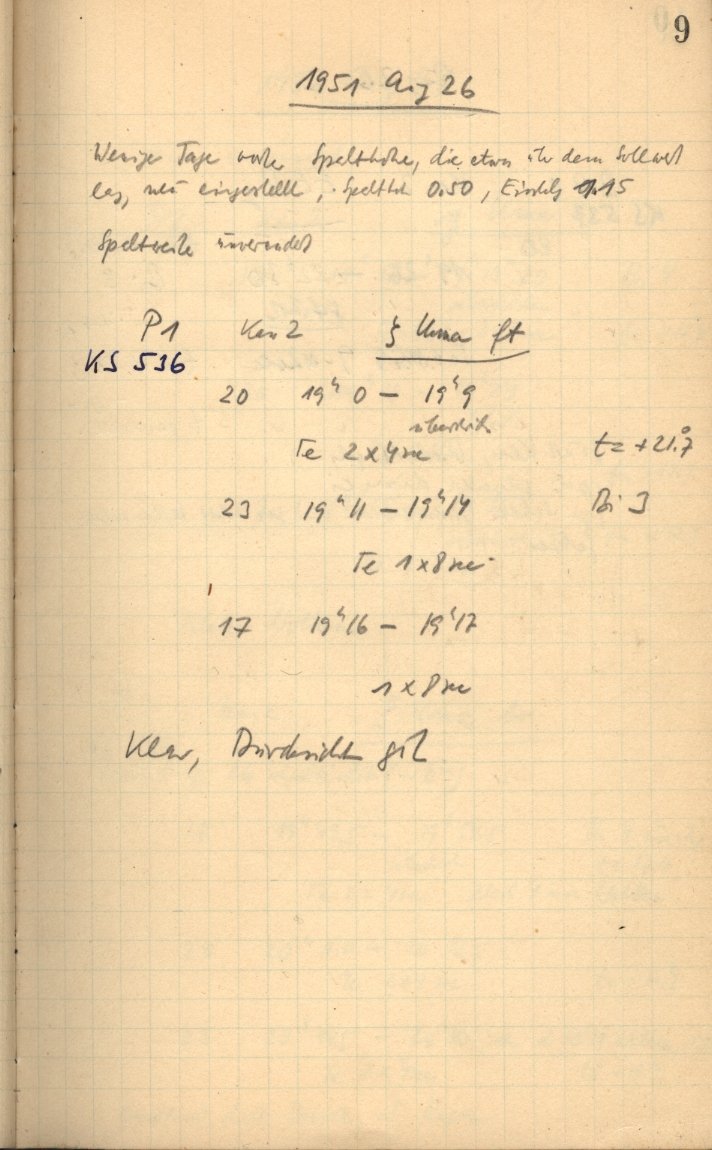 9
1951 Aug 26
Wenige Tage vorher Spalthöhe, die etwas über dem Sollwert
lag, neu eingestellt, Spalthöh 0.50, 0.15
Spaltweite unverändert
P1 Kam 2 ζ Uma ft
KS 536
20 19ʰ 0 – 19ʰ 9
Te 2 x 4 sec t = +21.°7
23 19ʰ 11 – 19ʰ 14 Bi 3
Te 1 x 8 sec
17 19ʰ 16 – 19ʰ 17
1 x 8 sec
Klar, Durchsicht gut